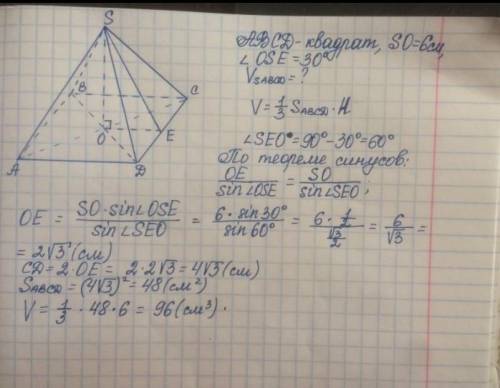 S
B
C
O
E
A
D
ABCD - квадрат, SO=6см,
∠OSE = 30°
V_SABCD = ?
V = 1/3 S_ABCD · H
∠SEO = 90° - 30° = 60°
По теореме синусов:
OE / sin∠OSE = SO / sin∠SEO,
OE = SO · sin∠OSE / sin∠SEO = 6 · sin 30° / sin 60° = 6 · 1/2 / √3/2 = 6/√3 =
= 2√3 (см)
CD = 2 · OE = 2 · 2√3 = 4√3 (см)
S_ABCD = (4√3)² = 48 (см²)
V = 1/3 · 48 · 6 = 96 (см³).